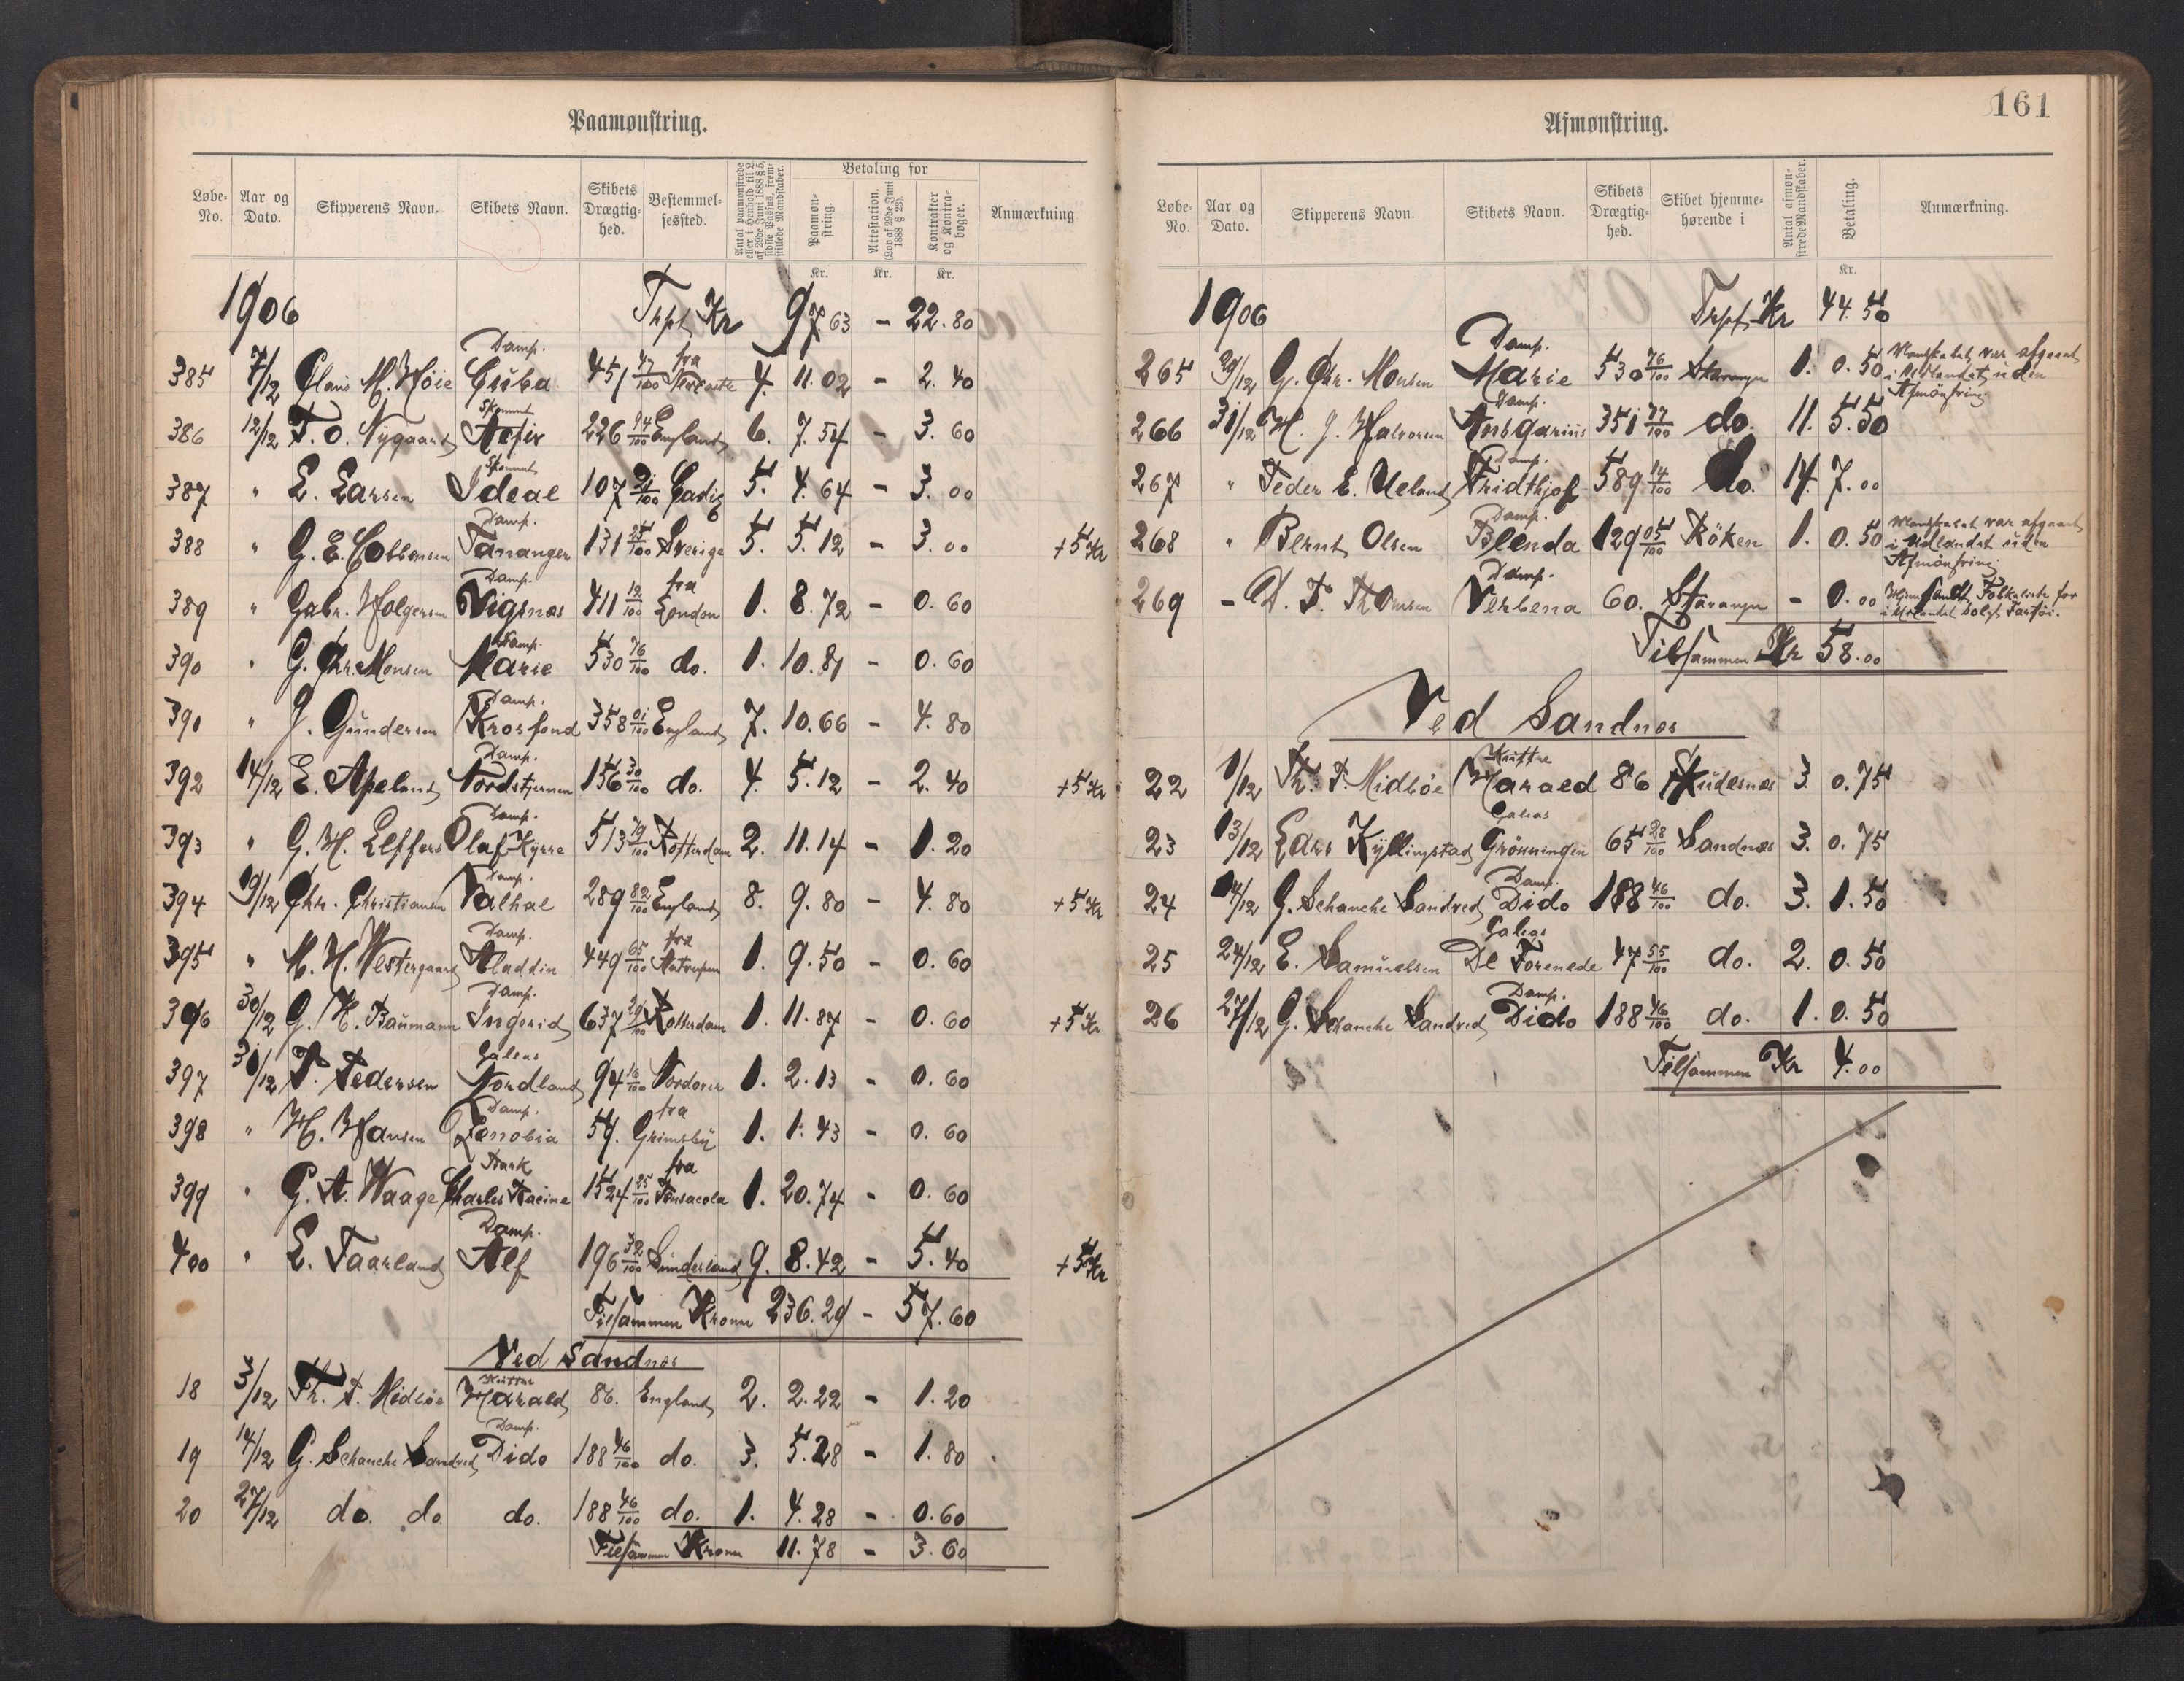 Paamønstring.
Løbe-No. Aar og Dato. Skipperens Navn. Skibets Navn. Skibets Drægtighed. Bestemmelsessted. Antal paamønstrede eller i Henhold til L. af 29de Juni 1888 § 5, sidste Passus, fremstillede Mandskaber. Betaling for Paamønstring. Attestation. (Lov af 29de Juni 1888 § 23). Kontrakter og Kontrabøger. Anmærkning
Kr. Kr. Kr.
1906 Trpt Kr 97.63 - 22.80
385 7/12 Claus M. Høie Damp. Cuba 451 47/100 fra 4. 11.02 - 2.40
386 12/12 T. O. Nygaard Skonnert Aefir 226 94/100 England 6. 7.54 - 3.60
387 " L. Larsen Skonnert Ideal 107 21/100 Cadiz 5. 4.64 - 3.00
388 " G. E. Damp. Tananger 131 25/100 Sverige 5. 5.12 - 3.00 + 5 Kr
389 " Gabr. Holgersen Damp. Vigsnæs 411 12/100 fra London 1. 8.72 - 0.60
390 " G. Chr. Monsen Damp. Marie 530 76/100 do. 1. 10.81 - 0.60
391 " J. Gundersen Damp. Krosfond 358 01/100 England 7. 10.66 - 4.80
392 14/12 E. Apeland Damp. Nordstjernen 156 30/100 do. 4. 5.12 - 2.40 + 5 Kr
393 " G. H. Elffers Damp. Olaf Kyrre 513 79/100 Rotterdam 2. 11.14 - 1.20
394 19/12 Chr. Christiansen Damp. Valhal 289 82/100 England 8. 9.80 - 4.80 + 5 Kr
395 " M. H. Westergaard Damp. Aladdin 449 65/100 fra Antwerpen 1. 9.50 - 0.60
396 30/12 G. K. Baumann Damp. Ingerid 637 29/100 Rotterdam 1. 11.87 - 0.60 + 5 Kr
397 31/12 P. Pedersen Galeas Nordland 94 16/100 Nordover 1. 2.13 - 0.60
398 " H. Hansen Damp. Zenobia 54. fra Grimsby 1. 1.43 - 0.60
399 " G. A. Waage Bark Charles Racine 1524 25/100 fra Pensacola 1. 20.74 - 0.60
400 " E. Taarland Damp. Alf 196 32/100 Sunderland 9. 8.42 - 5.40 + 5 Kr
Tilsammen Kroner 236.29 - 57.60
Ved Sandnes
18 3/12 Th. T. Midbøe Kutter Harald 86. England 2. 2.22 - 1.20
19 14/12 G. Schanche Sandved Damp. Dido 188 46/100 do. 3. 5.28 - 1.80
20 27/12 do. do. do. 188 46/100 do. 1. 4.28 - 0.60
Tilsammen Kroner 11.78 - 3.60
161
Afmønstring.
Løbe-No. Aar og Dato. Skipperens Navn. Skibets Navn. Skibets Drægtighed. Skibet hjemmehørende i Antal afmønstrede Mandskaber. Betaling. Anmærkning.
Kr.
1906 Trpt Kr 44.50
265 29/12 G. Chr. Monsen Damp. Marie 530 76/100 Stavanger 1. 0.50 Mandskabet var afgaaet i Udlandet uden Afmønstring
266 31/12 H. J. Halvorsen Damp. Ansgarius 351 77/100 do. 11. 5.50
267 " Peder E. Ueland Damp. Fridthjof 589 14/100 do. 14. 7.00
268 " Bernt Olsen Damp. Blenda 129 05/100 Röken 1. 0.50 Mandskabet var afgaaet i Udlandet uden Afmønstring
269 - D. T. Thomsen Damp. Verbena 60. Stavanger - 0.00 Hjemsendt Folkeliste for i Udlandet solgt Fartøi.
Tilsammen Kr 58.00
Ved Sandnes
22 1/12 Th. T. Midbøe Kutter Harald 86 Skudesnes 3. 0.75
23 13/12 Lars Kyllingstad Galeas Grönningen 65 28/100 Sandnæs 3. 0.75
24 14/12 G. Schanche Sandved Damp. Dido 188 46/100 do. 3. 1.50
25 24/12 E. Samuelsen Galeas De Forenede 47 55/100 do. 2. 0.50
26 27/12 G. Schanche Sandved Damp. Dido 188 46/100 do. 1. 0.50
Tilsammen Kr 4.00